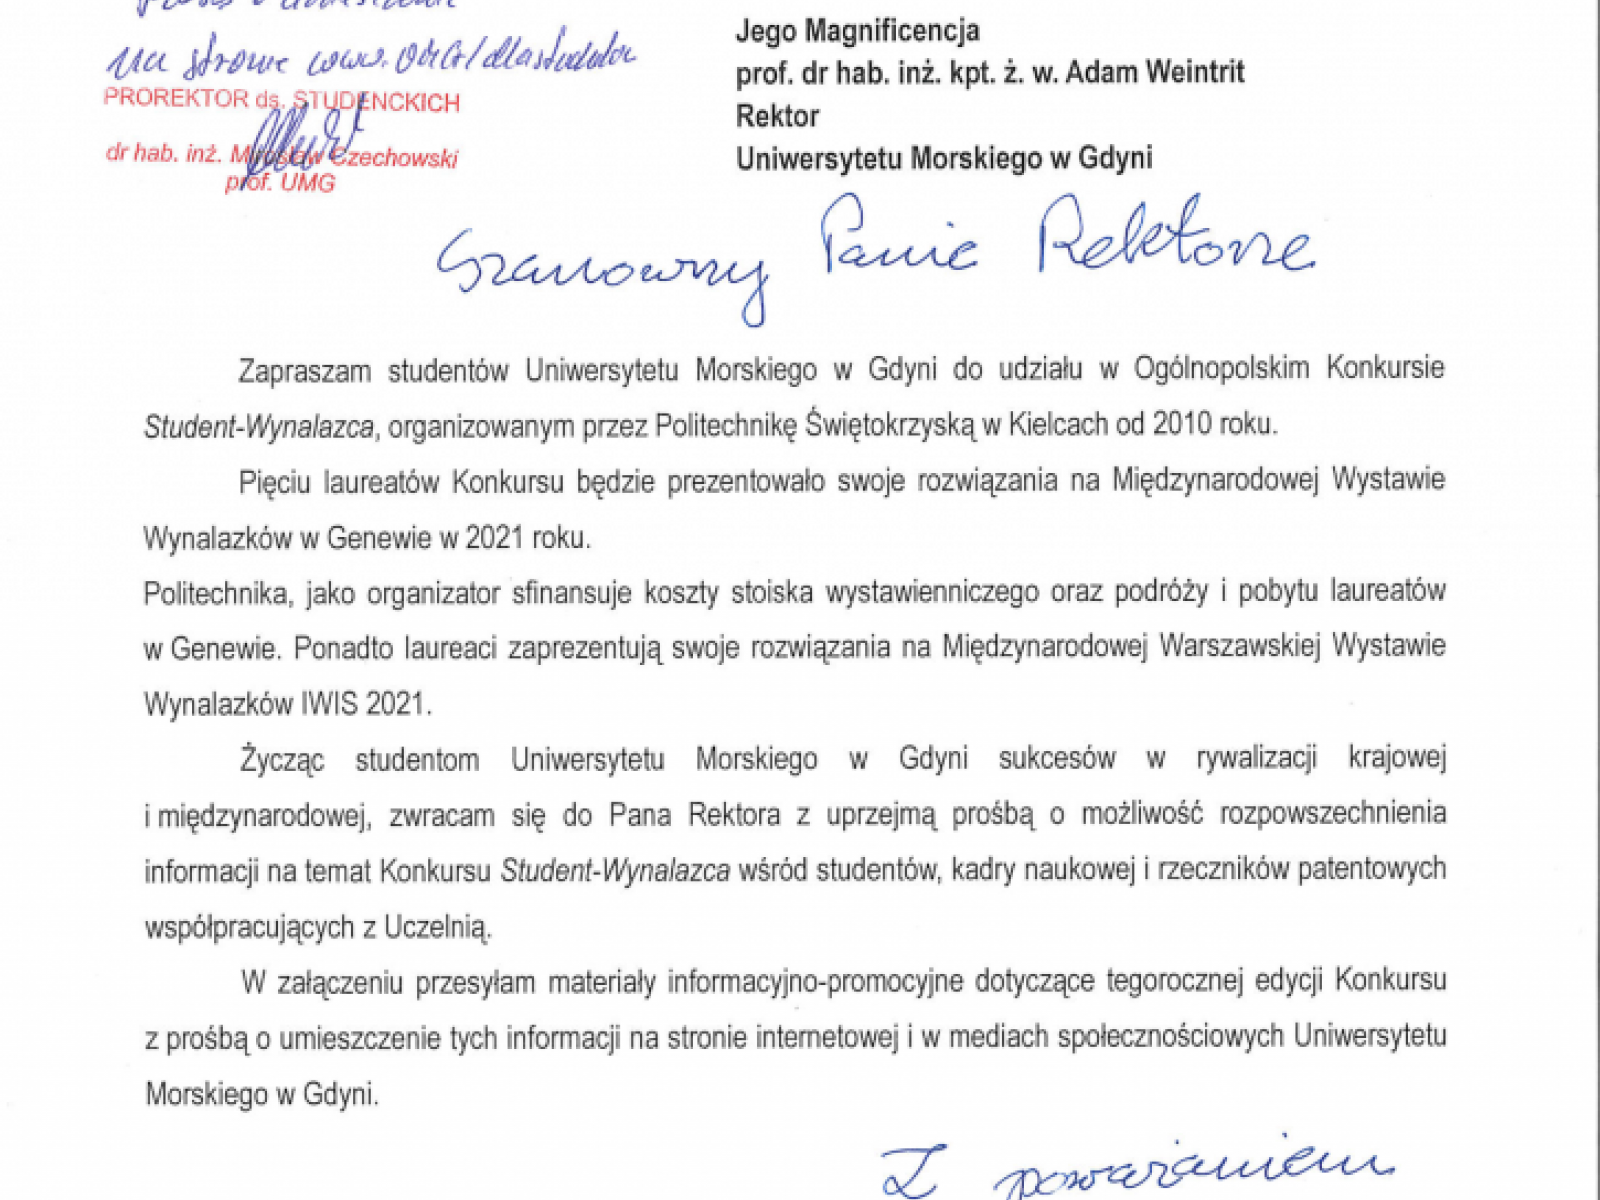 na stronie www.
PROREKTOR ds. STUDENCKICH
dr hab. inż. Mirosław Czechowski
prof. UMG
Jego Magnificencja
prof. dr hab. inż. kpt. ż. w. Adam Weintrit
Rektor
Uniwersytetu Morskiego w Gdyni
Szanowny Panie Rektorze
Zapraszam studentów Uniwersytetu Morskiego w Gdyni do udziału w Ogólnopolskim Konkursie
Student-Wynalazca, organizowanym przez Politechnikę Świętokrzyską w Kielcach od 2010 roku.
Pięciu laureatów Konkursu będzie prezentowało swoje rozwiązania na Międzynarodowej Wystawie
Wynalazków w Genewie w 2021 roku.
Politechnika, jako organizator sfinansuje koszty stoiska wystawienniczego oraz podróży i pobytu laureatów
w Genewie. Ponadto laureaci zaprezentują swoje rozwiązania na Międzynarodowej Warszawskiej Wystawie
Wynalazków IWIS 2021.
Życząc studentom Uniwersytetu Morskiego w Gdyni sukcesów w rywalizacji krajowej
i międzynarodowej, zwracam się do Pana Rektora z uprzejmą prośbą o możliwość rozpowszechnienia
informacji na temat Konkursu Student-Wynalazca wśród studentów, kadry naukowej i rzeczników patentowych
współpracujących z Uczelnią.
W załączeniu przesyłam materiały informacyjno-promocyjne dotyczące tegorocznej edycji Konkursu
z prośbą o umieszczenie tych informacji na stronie internetowej i w mediach społecznościowych Uniwersytetu
Morskiego w Gdyni.
Z poważaniem